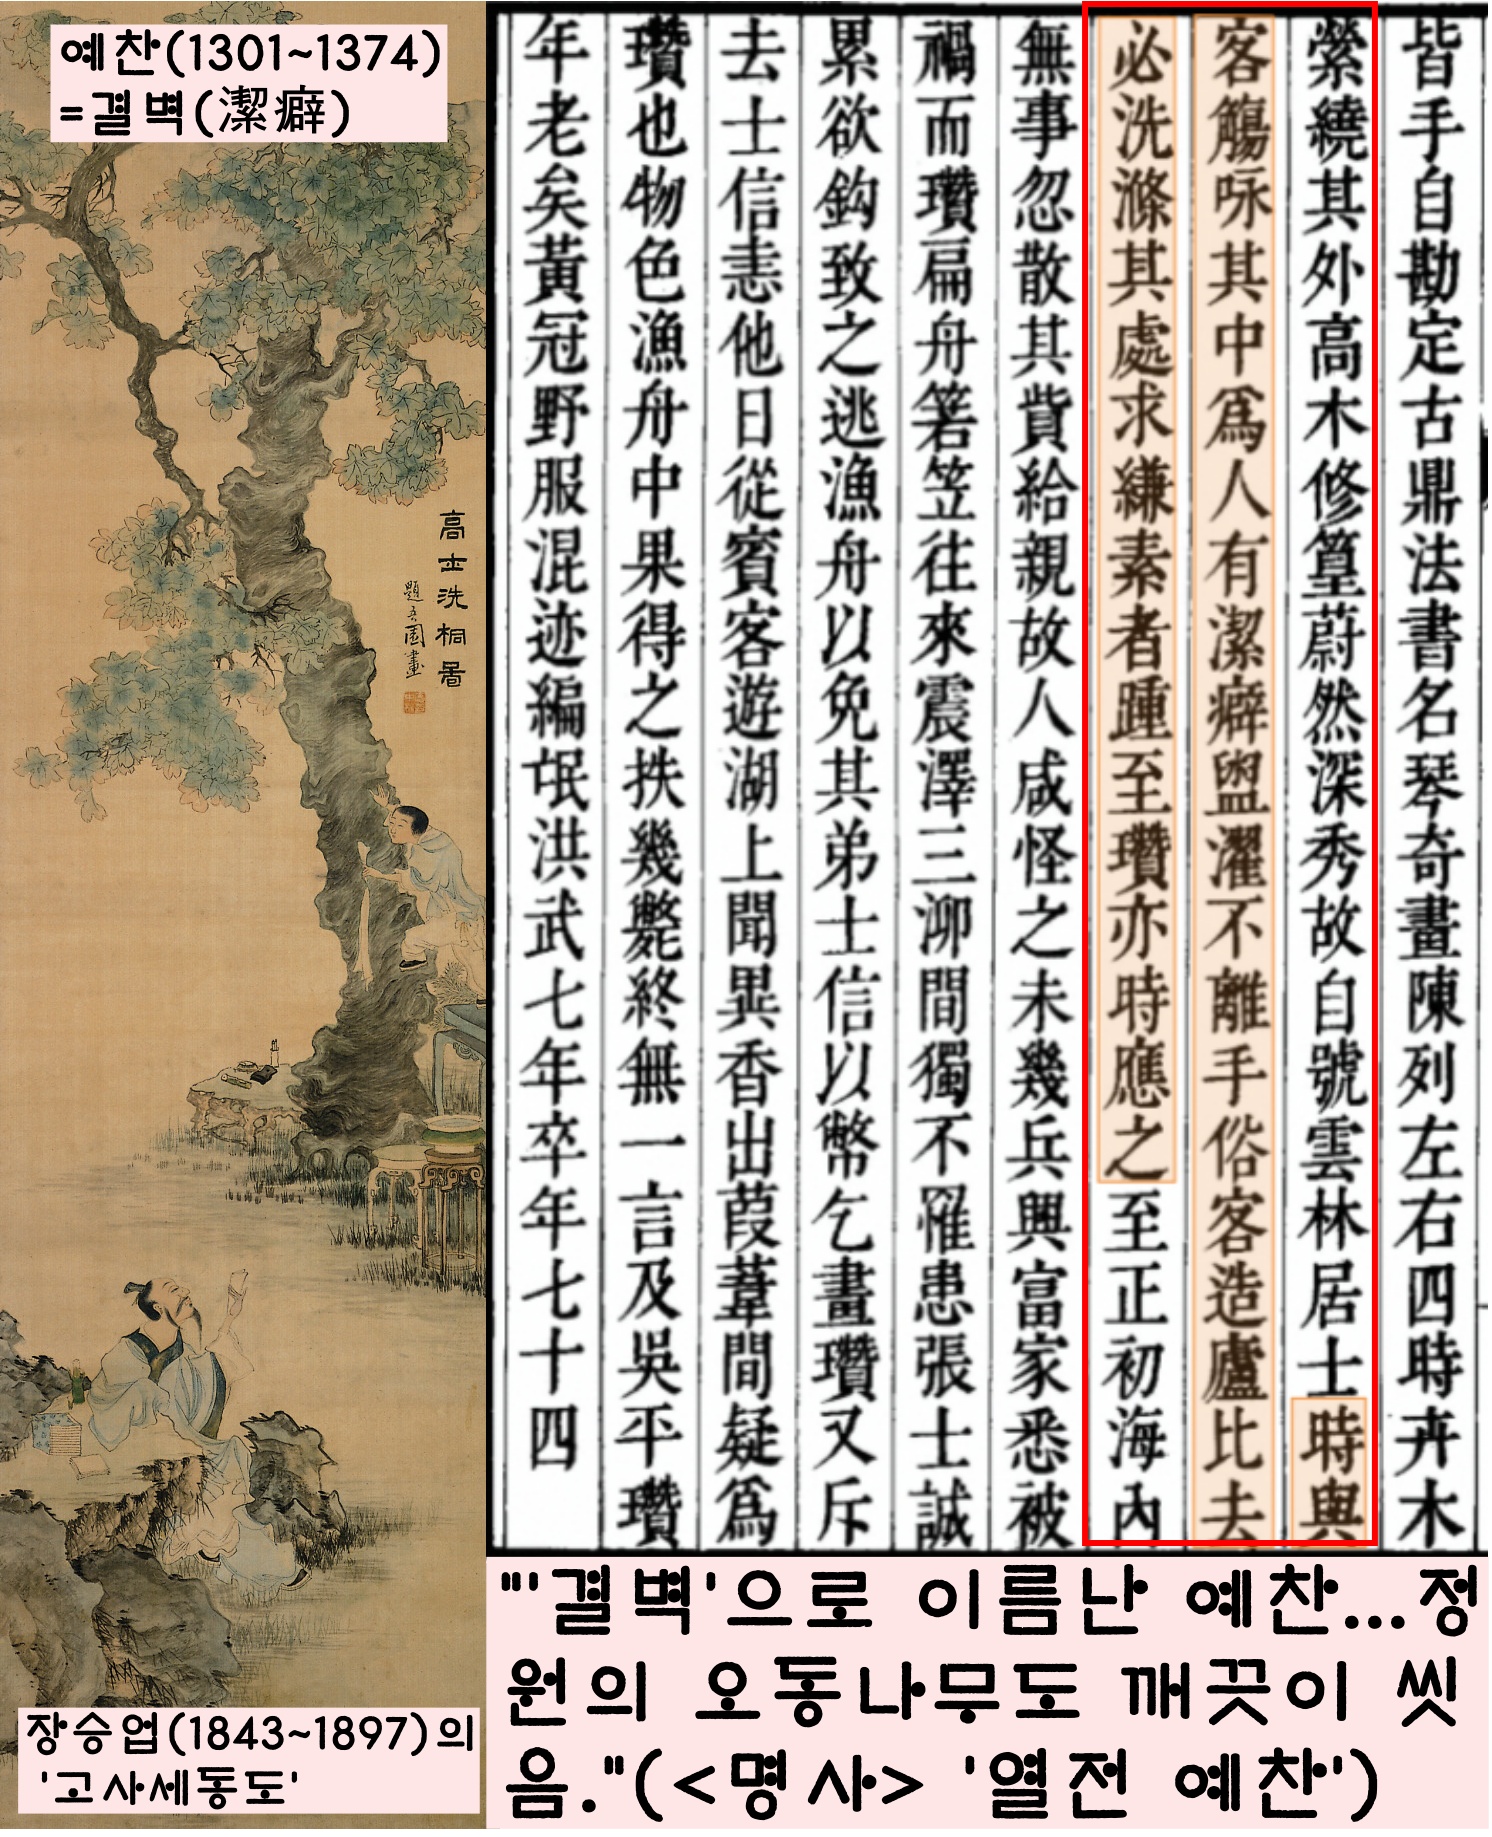 예찬(1301~1374)
=결벽(潔癖)
高士洗桐圖
題吾園畫
장승업(1843~1897)의
'고사세동도'
皆手自勘定古鼎法書名琴奇畫陳列左右四時卉木
縈繞其外高木修篁蔚然深秀故自號雲林居士時與
客觴咏其中爲人有潔癖盥濯不離手俗客造廬比去
必洗滌其處求縑素者踵至瓚亦時應之至正初海內
無事忽散其貲給親故人咸怪之未幾兵興富家悉被
禍而瓚扁舟箬笠往來震澤三泖間獨不罹患張士誠
累欲鈎致之逃漁舟以免其弟士信以幣乞畫瓚又斥
去士信恚他日從賓客遊湖上聞異香出葭葦間疑爲
瓚也物色漁舟中果得之抶幾斃終無一言及吳平瓚
年老矣黃冠野服混迹編氓洪武七年卒年七十四
"'결벽'으로 이름난 예찬...정
원의 오동나무도 깨끗이 씻
음."(<명사> '열전 예찬')